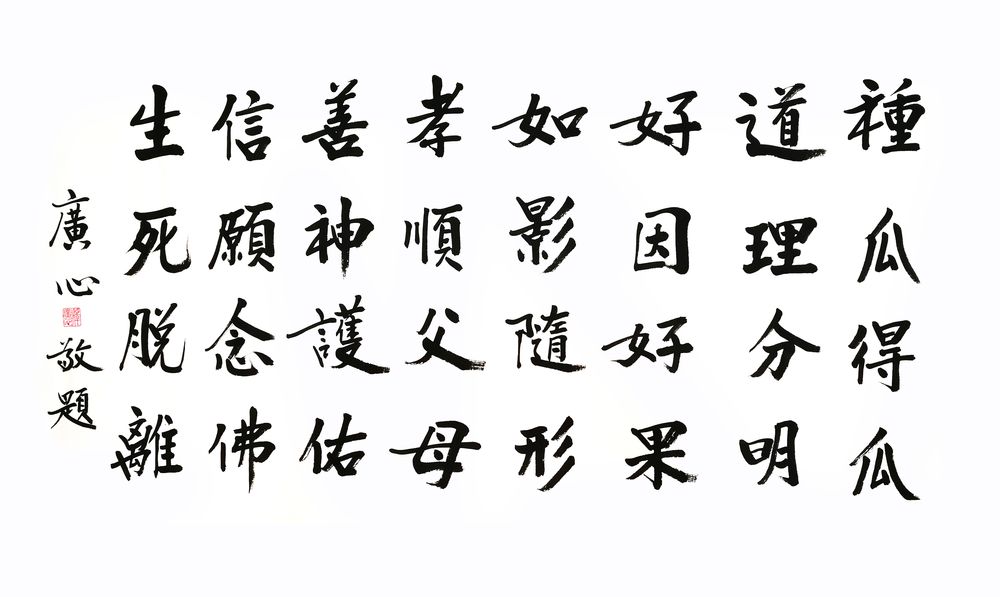 種瓜得瓜
道理分明
好因好果
如影隨形
孝順父母
善神護佑
信願念佛
生死脫離
廣心敬題